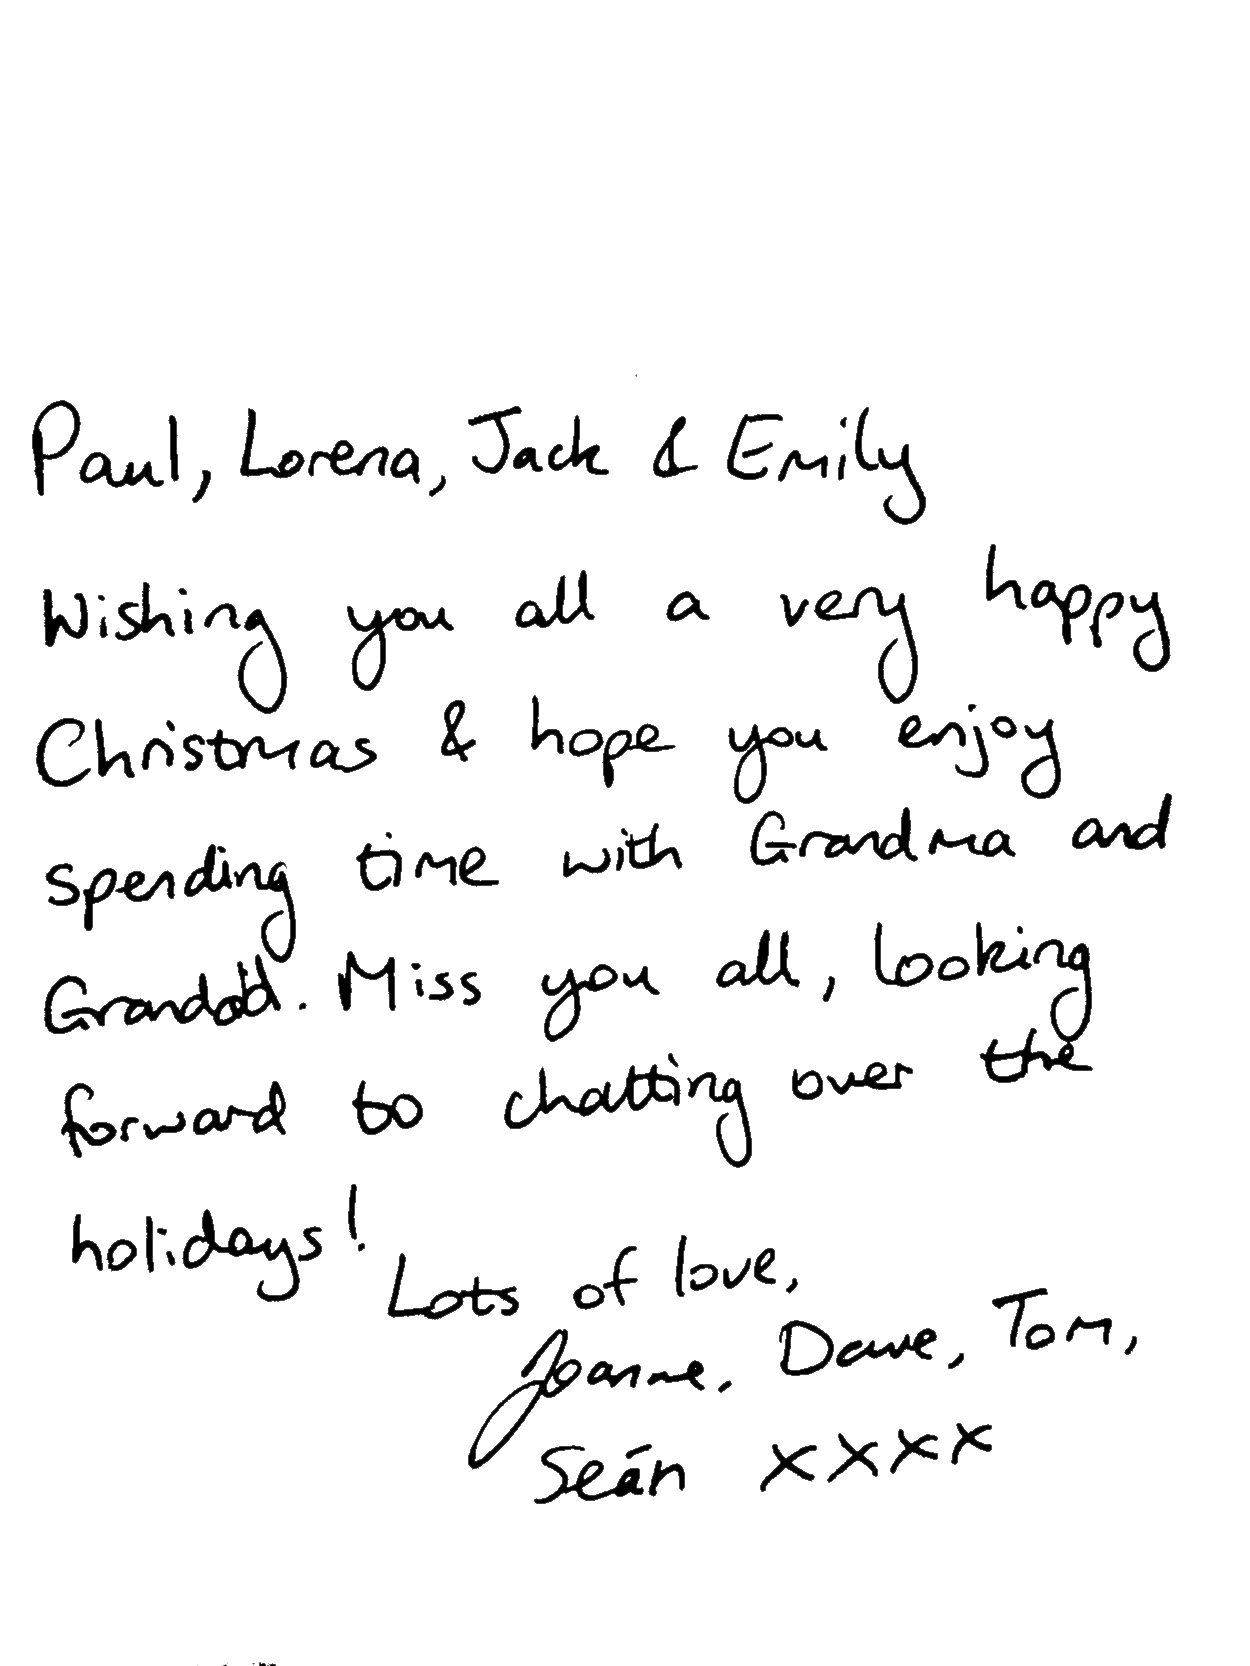 Paul, Lorena, Jack & Emily
Wishing you all a very happy
Christmas & hope you enjoy
spending time with Grandma and
Grandad. Miss you all, looking
forward to chatting over the
holidays!
Lots of love,
Joanne, Dave, Tom,
Seán xxxx